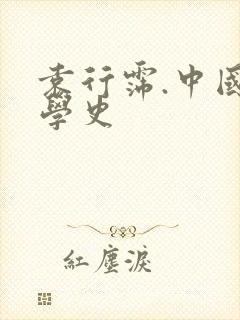 袁行霈.中國
學史
紅塵淚